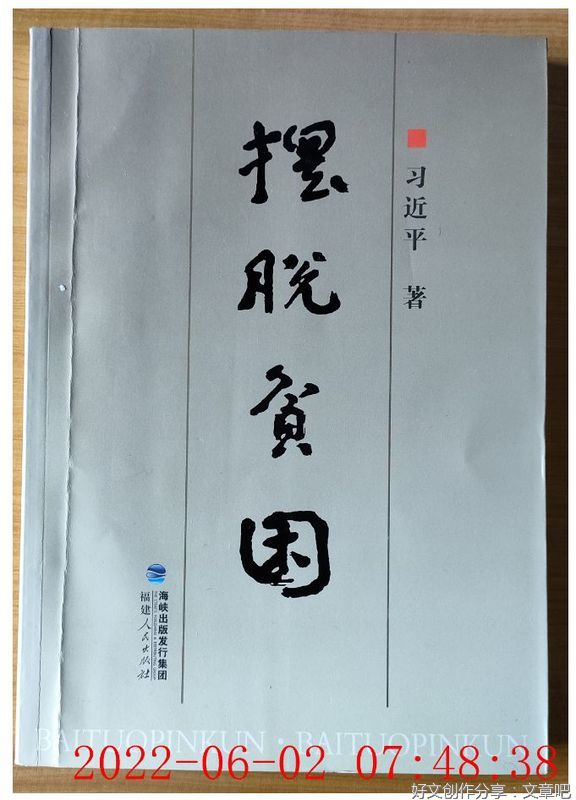 摆脱贫困
习近平 著
海峡出版发行集团
福建人民出版社
BAITUOPINKUN · BAITUOPINKUN
2022-06-02 07:48:38
好文创作分享：文章吧